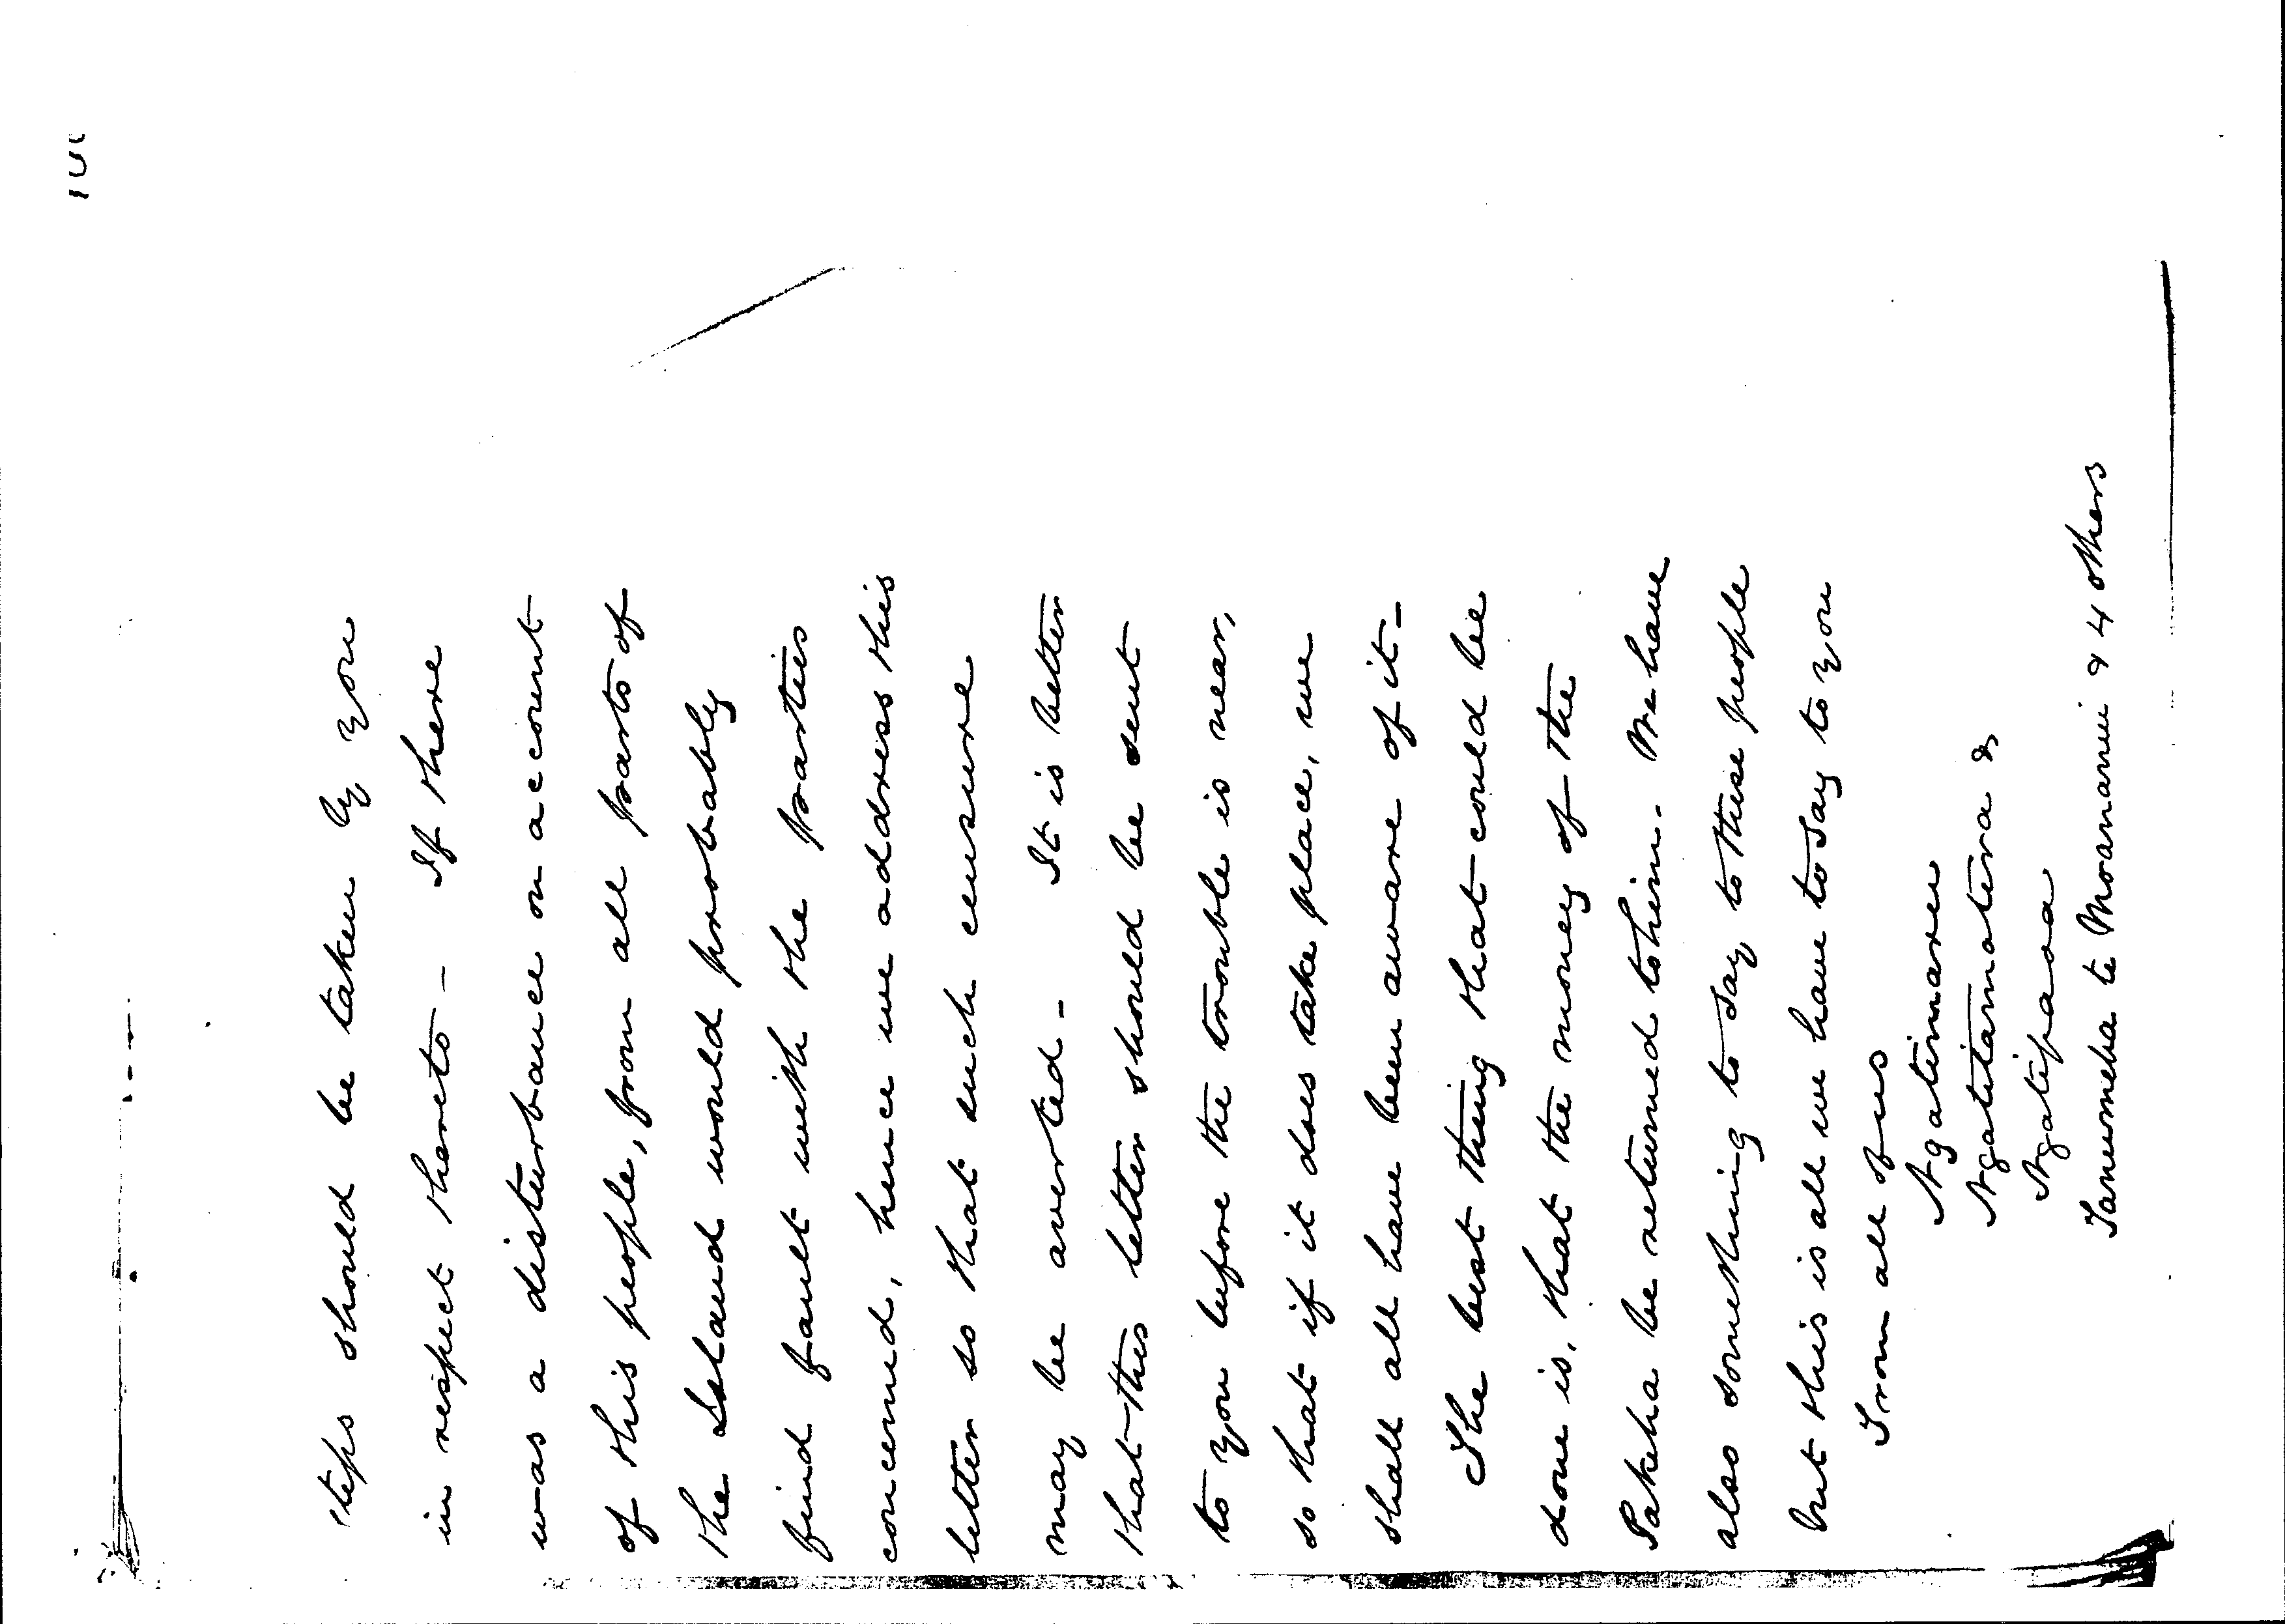 steps should be taken by you
in respect thereto - If there
was a disturbance on account
of this people, from all parts of
the Island would probably
find fault with the parties
concerned, hence we address this
letter so that such censure
may be averted - It is better
that this letter should be sent
to you before the trouble is near,
so that if it does take place, we
shall all have been aware of it -
The best thing that could be
done is, that the money of the
Pakeha be returned to him. We have
also something to say to these people
but this is all we have to say to you
From all of us
Ngatimaru
Ngatitamatera &
Ngatipaoa
Tanumeha te Moananui & 4 others